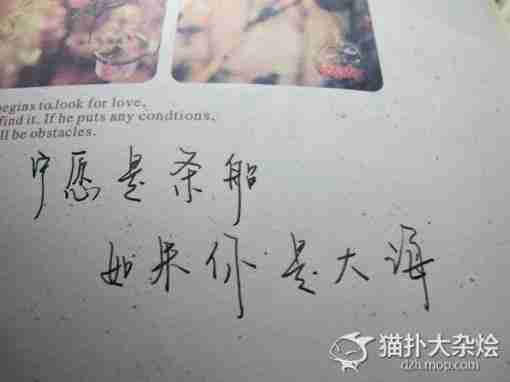 begins to look for love,
find it. If he puts any condtions,
ll be obstacles.
宁愿是条船
如果你是大海
猫扑大杂烩
dzh.mop.com